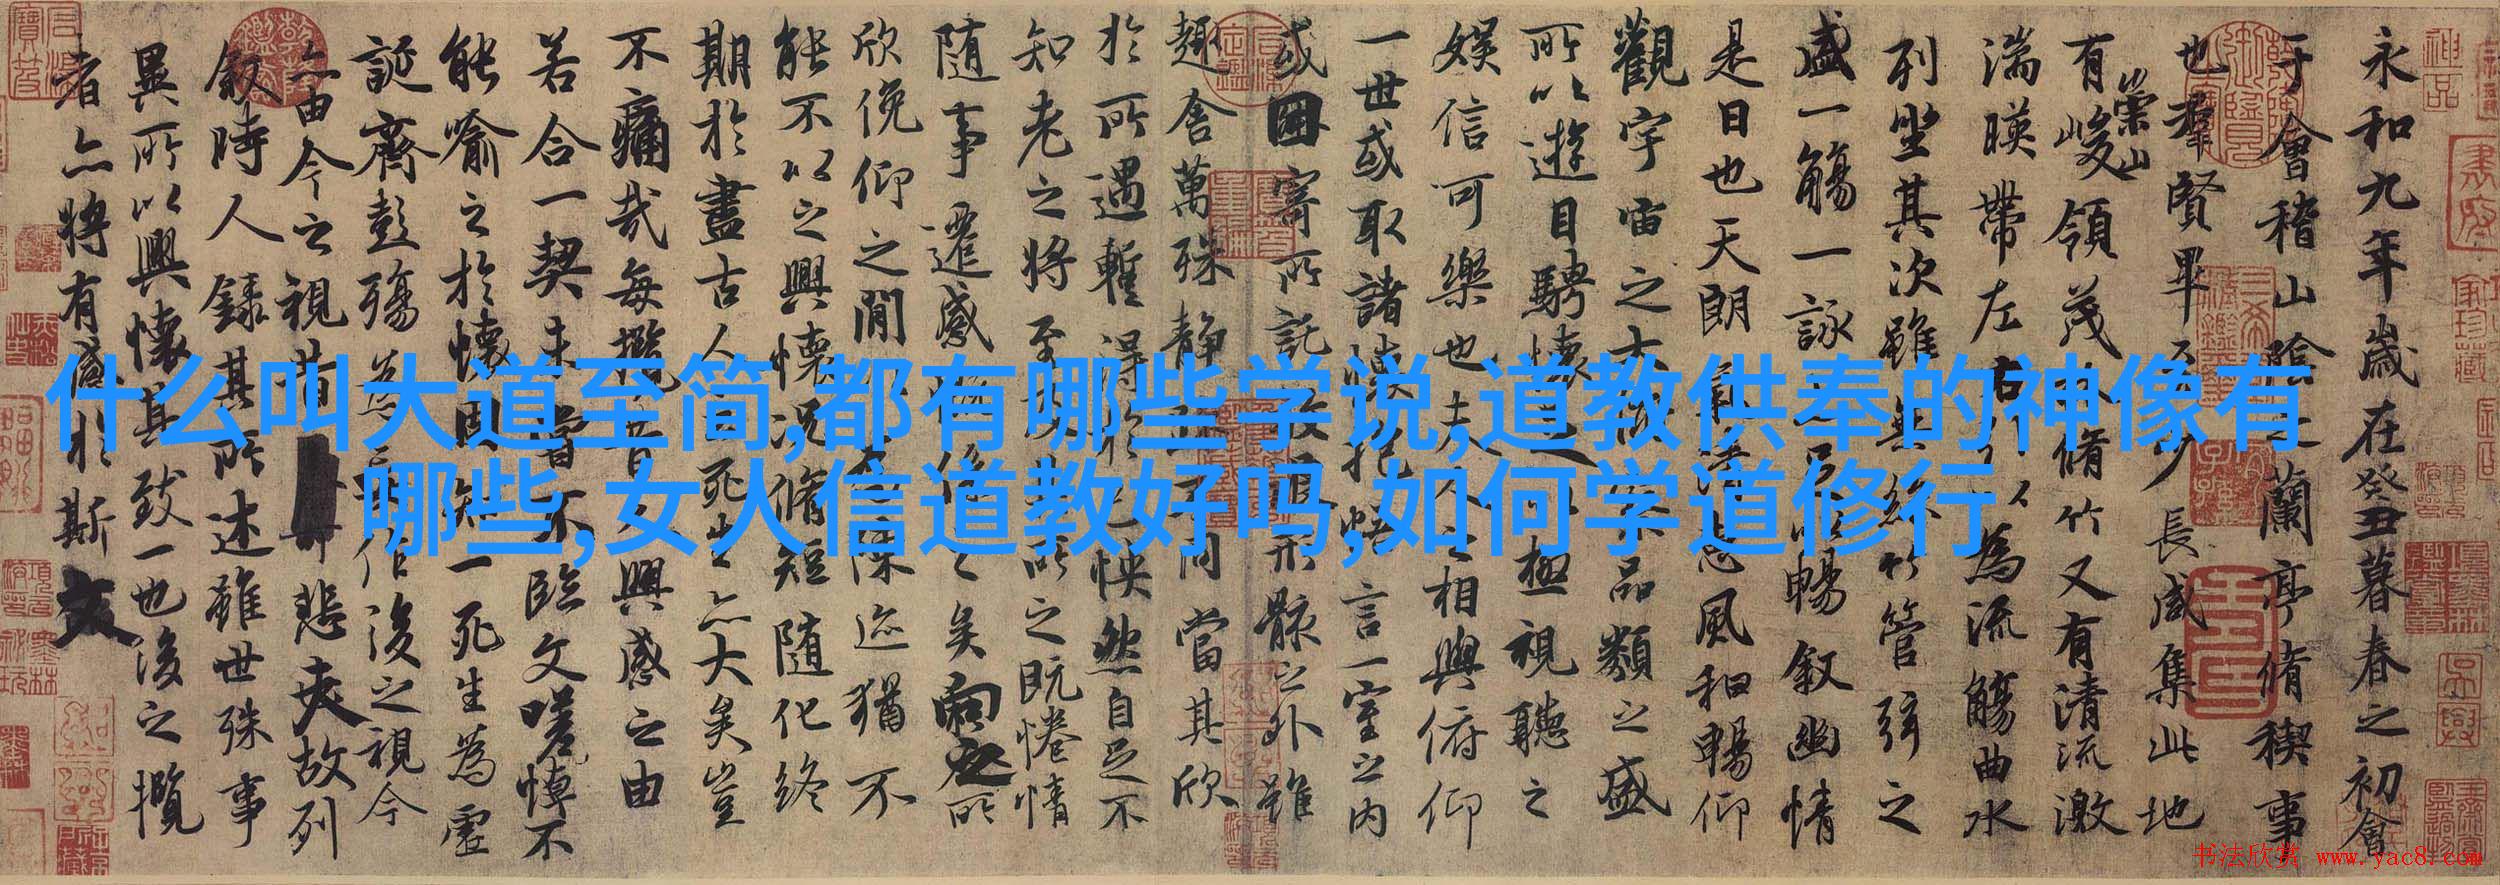 什么叫大道至简,都有哪些学说,道教供奉的神像有
哪些,女人信道教好吗,如何学道修行
永和九年歲在癸丑暮春之初會
于會稽山陰之蘭亭脩稧事
也羣賢畢至少長咸集此地
有崇山峻領茂林脩竹又有清流激
湍暎帶左右引以為流觴曲水
列坐其次雖無絲竹管弦之
盛一觴一詠亦足以暢叙幽情
是日也天朗氣清惠風和暢仰
觀宇宙之大俯察品類之盛
所以遊目騁懷足以極視聽之
娛信可樂也夫人之相與俯仰
一世或取諸懷抱悟言一室之內
或因寄所託放浪形骸之外雖
趣舍萬殊靜躁不同當其欣
於所遇暫得於己怏然自足不
知老之將至及其所之既惓情
隨事遷感慨係之矣向之所
欣俛仰之閒以為陳迹猶不
能不以之興懷況脩短隨化終
期於盡古人云死生亦大矣豈
不痛哉每攬昔人興感之由
若合一契未嘗不臨文嗟悼不
能喻之於懷固知一死生為虛
誕齊彭殤為妄作後之視今
亦由今之視昔悲夫故列
叙時人錄其所述雖世殊事
異所以興懷其致一也後之攬
者亦將有感於斯文
书法欣赏 www.yac8.com